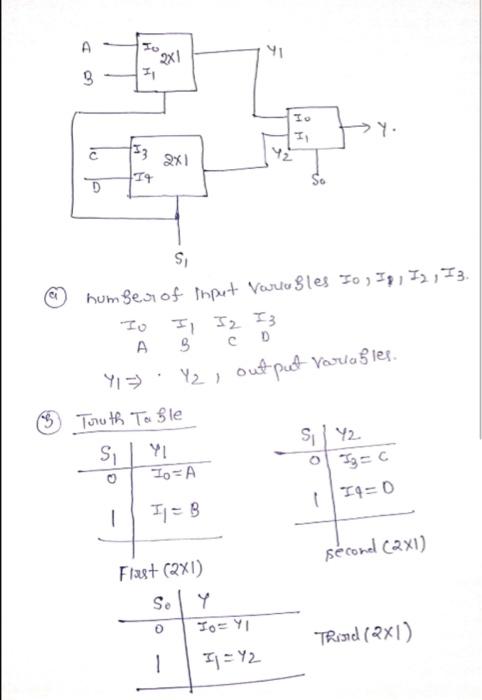 A I0 2x1 Y1
B I1
I0
I1 Y.
C I3 2x1 Y2
D I4 S0
S1
(a) number of Input Variables I0, I1, I2, I3.
I0 I1 I2 I3
A B C D
Y1 ⇒ · Y2, output variables.
(b) Truth Table
S1 Y1
0 I0 = A
1 I1 = B
First (2x1)
S1 Y2
0 I3 = C
1 I4 = D
second (2x1)
S0 Y
0 I0 = Y1
1 I1 = Y2
Third (2x1)